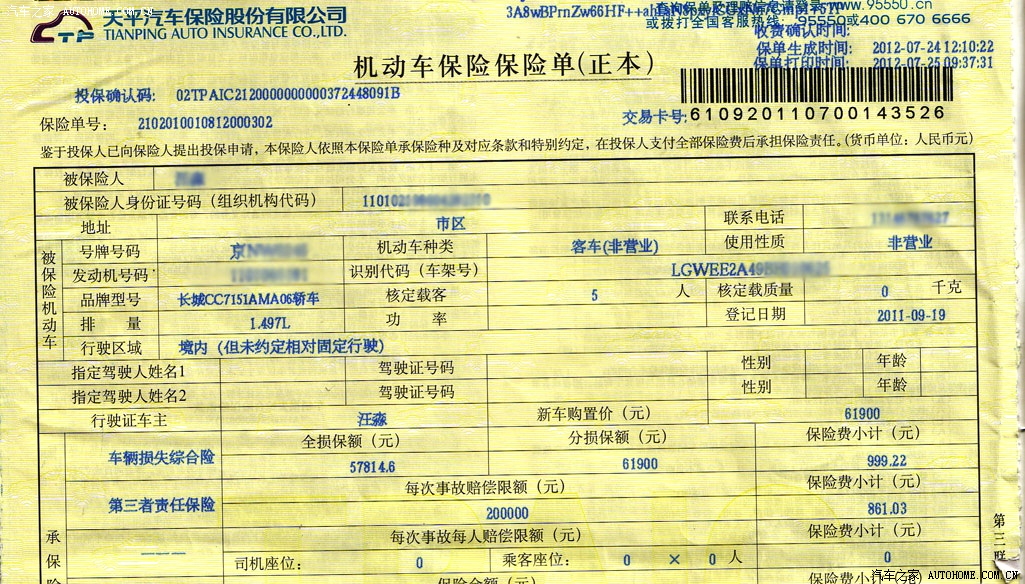 汽车之家 AUTOHOME.COM.CN
天平汽车保险股份有限公司
TIANPING AUTO INSURANCE CO.,LTD.
CTP
查询保单及理赔信息请登录www.95550.cn
或拨打全国客服热线：95550或400 670 6666
收费确认时间：
保单生成时间： 2012-07-24 12:10:22
保单打印时间： 2012-07-25 09:37:31
机动车保险保险单(正本)
投保确认码： 02TPAIC212000000000372448091B
保险单号： 2102010010812000302
交易卡号:6109201107001 43526
鉴于投保人已向保险人提出投保申请，本保险人依照本保险单承保险种及对应条款和特别约定，在投保人支付全部保险费后承担保险责任。(货币单位：人民币元)
被保险人
被保险人身份证号码（组织机构代码） 110102
地址 市区 联系电话
被保险机动车
号牌号码 京N 机动车种类 客车(非营业) 使用性质 非营业
发动机号码 识别代码（车架号） LGWEE2A49
品牌型号 长城CC7151AMA06轿车 核定载客 5 人 核定载质量 0 千克
排 量 1.497L 功 率 登记日期 2011-09-19
行驶区域 境内（但未约定相对固定行驶）
指定驾驶人姓名1 驾驶证号码 性别 年龄
指定驾驶人姓名2 驾驶证号码 性别 年龄
行驶证车主 汪淼 新车购置价（元） 61900
全损保额（元） 分损保额（元） 保险费小计（元）
车辆损失综合险 57814.6 61900 999.22
每次事故赔偿限额（元） 保险费小计（元）
第三者责任保险 200000 861.03
每次事故每人赔偿限额（元） 保险费小计（元）
—— 司机座位： 0 乘客座位： 0 × 0 人 0
承保险
保险金额（元） 保险费小计（元）
第三联
汽车之家 AUTOHOME.COM.CN